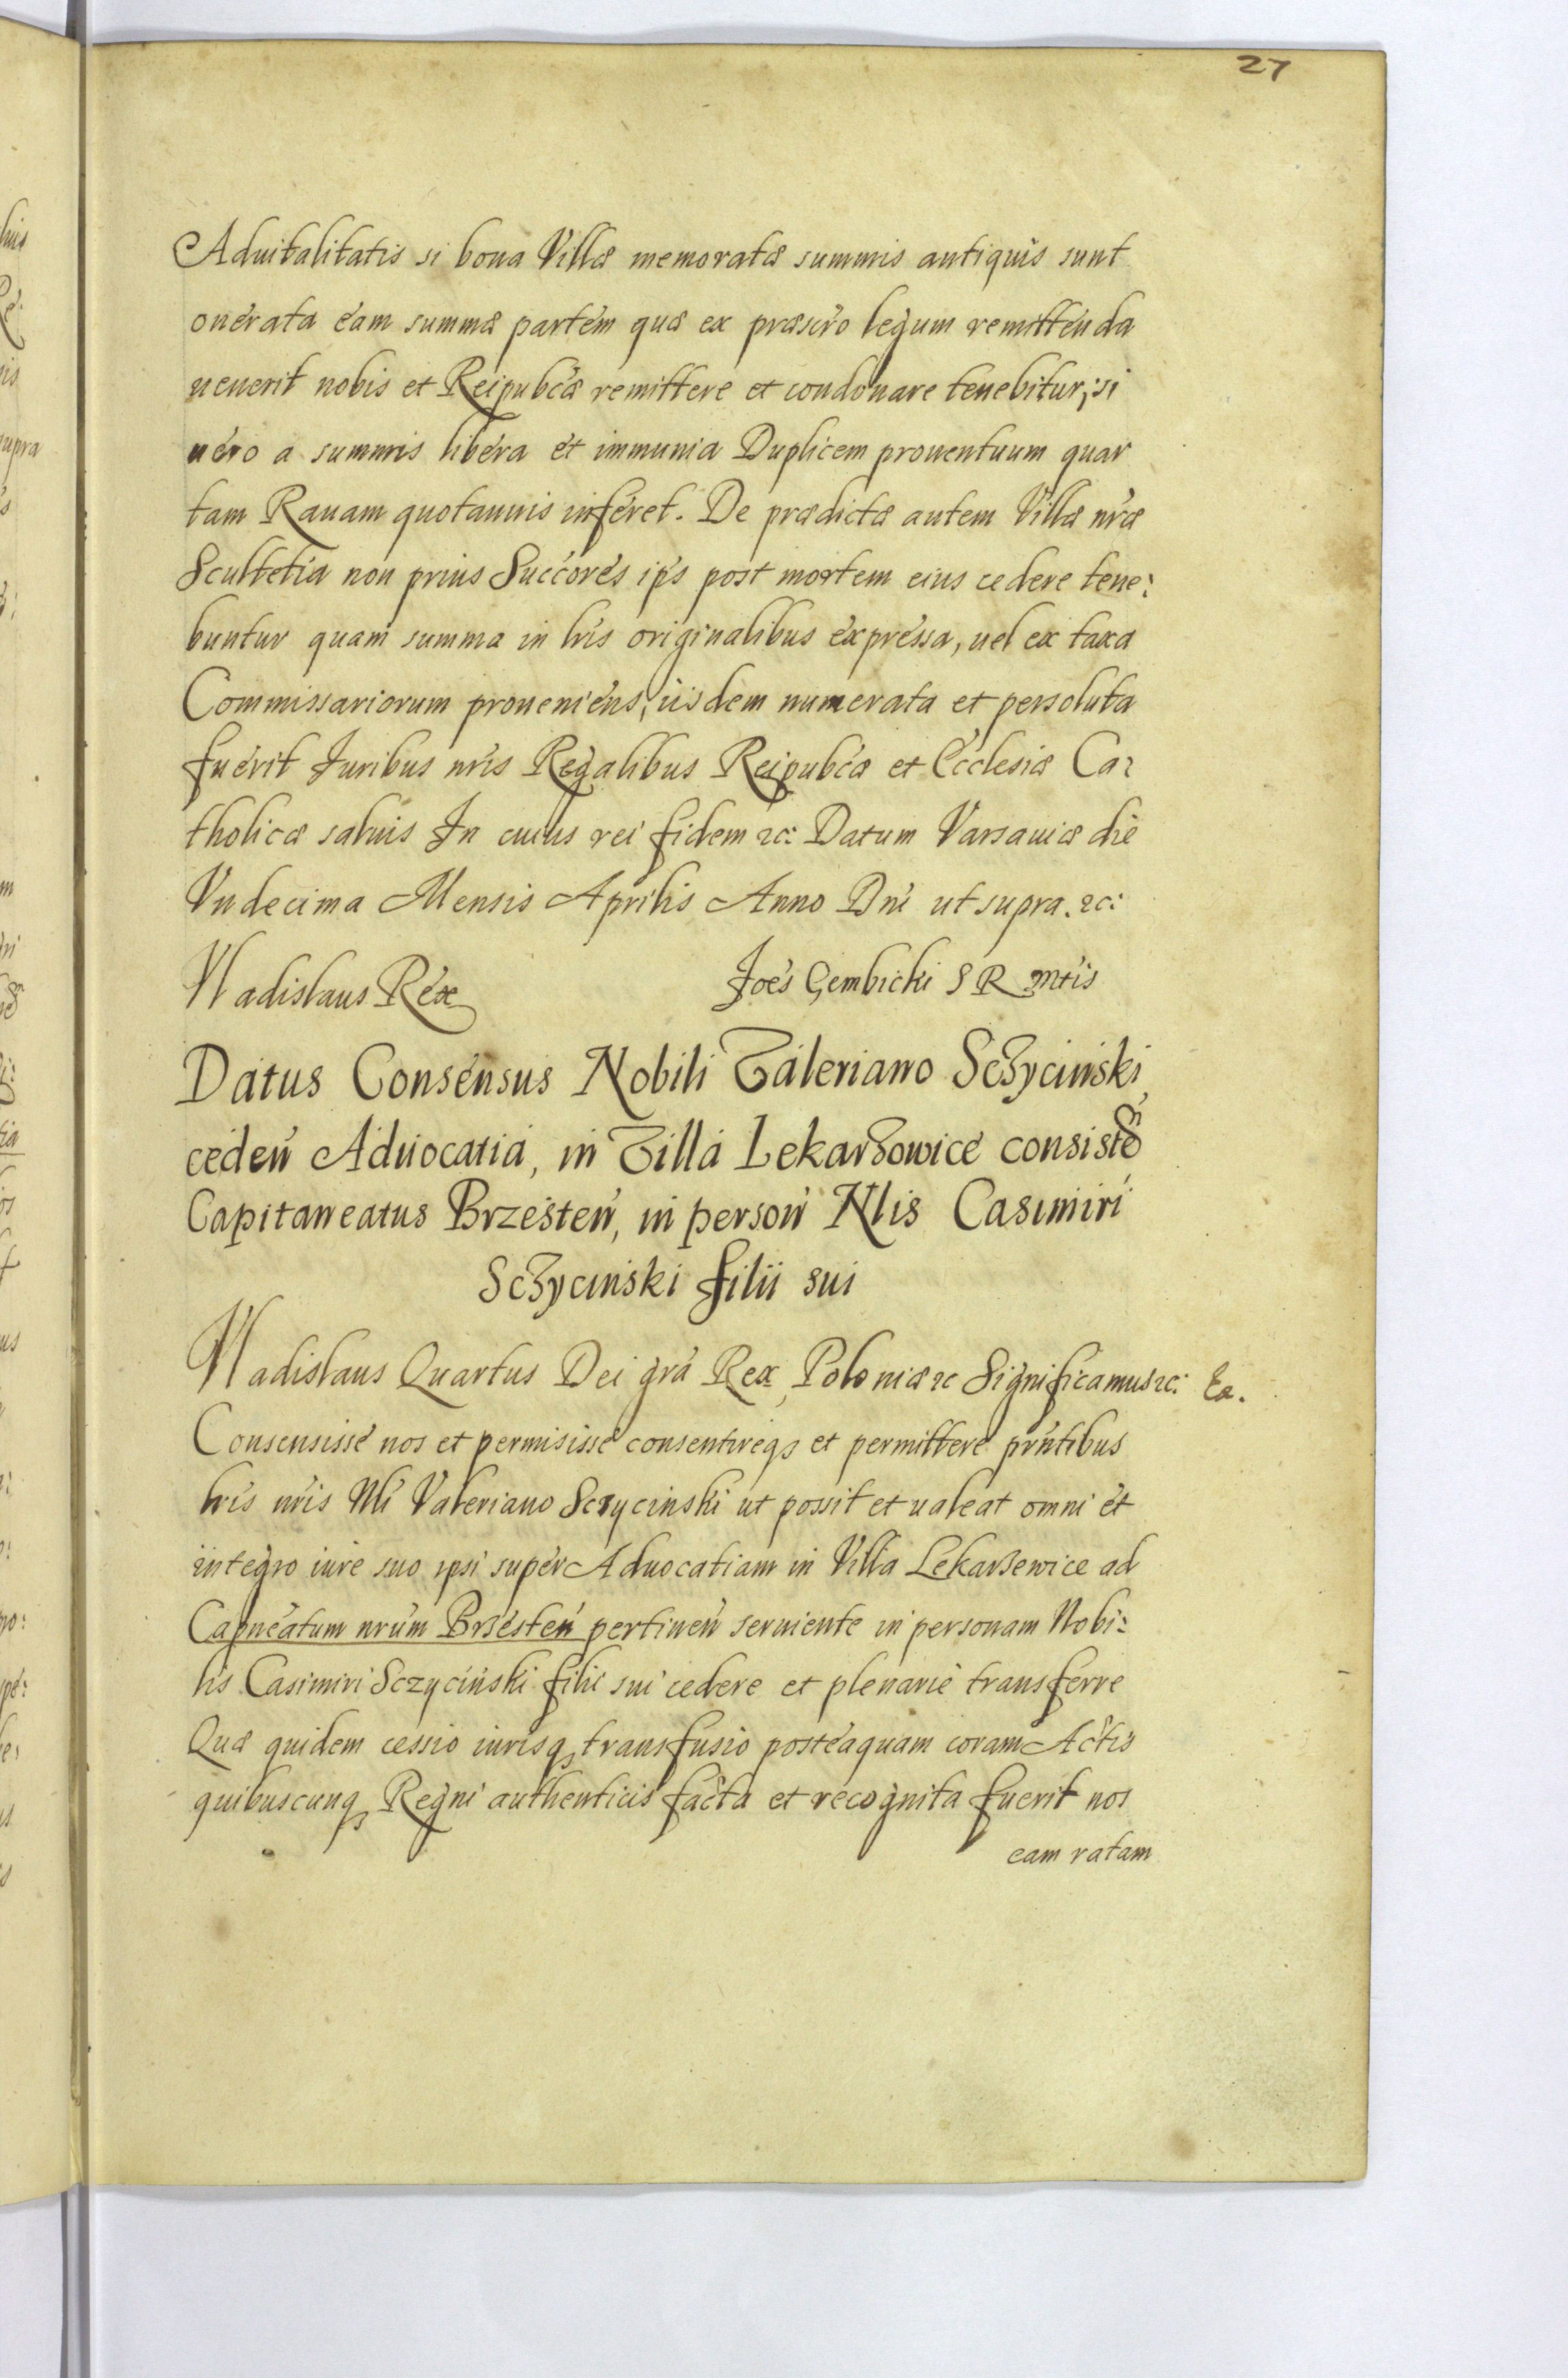 27
Aduitalitatis si bona Villæ memoratæ summis antiquis sunt
onerata eam summæ partem quæ ex præscro legum remittenda
uenerit nobis et Reipubcæ remittere et condonare tenebitur, si
uero a summis libera et immunia Duplicem prouentuum quar
tam Rauam quotannis inferet. De prædicta autem Villæ nræ
Scultetia non prius Succores ips post mortem eius cedere tene:
buntur quam summa in lris originalibus expressa, uel ex taxa
Commissariorum proueniens, iisdem numerata et persoluta
fuerit Iuribus nris Regalibus Reipubcæ et Ecclesiæ Ca:
tholicæ saluis In cuius rei fidem etc: Datum Varsauiæ die
Vndecima Mensis Aprilis Anno Dni ut supra. etc:
Vladislaus Rex Joes Gembicki S R Mtis
Datus Consensus Nobili Valeriano Sczycinski
ceden Aduocatia, in Villa Lekarzowice consisten
Capitaneatus Brzesten, in person Nlis Casimiri
Sczycinski filii sui
Vladislaus Quartus Dei gra Rex Poloniæ etc Significamus etc: Ex.
Consensisse nos et permisisse consentireq3 et permittere prntibus
lris nris Nli Valeriano Sczycinski ut possit et ualeat omni et
integro iure suo ipsi super Aduocatiam in Villa Lekarzewice ad
Capneatum nrum Brzesten pertinen seruiente in personam Nobi:
lis Casimiri Sczycinski filii sui cedere et plenarie transferre
Quæ quidem cessio iurisq3 transfusio posteaquam coram Actis
quibuscunq3 Regni authenticis facta et recognita fuerit nos
eam ratam